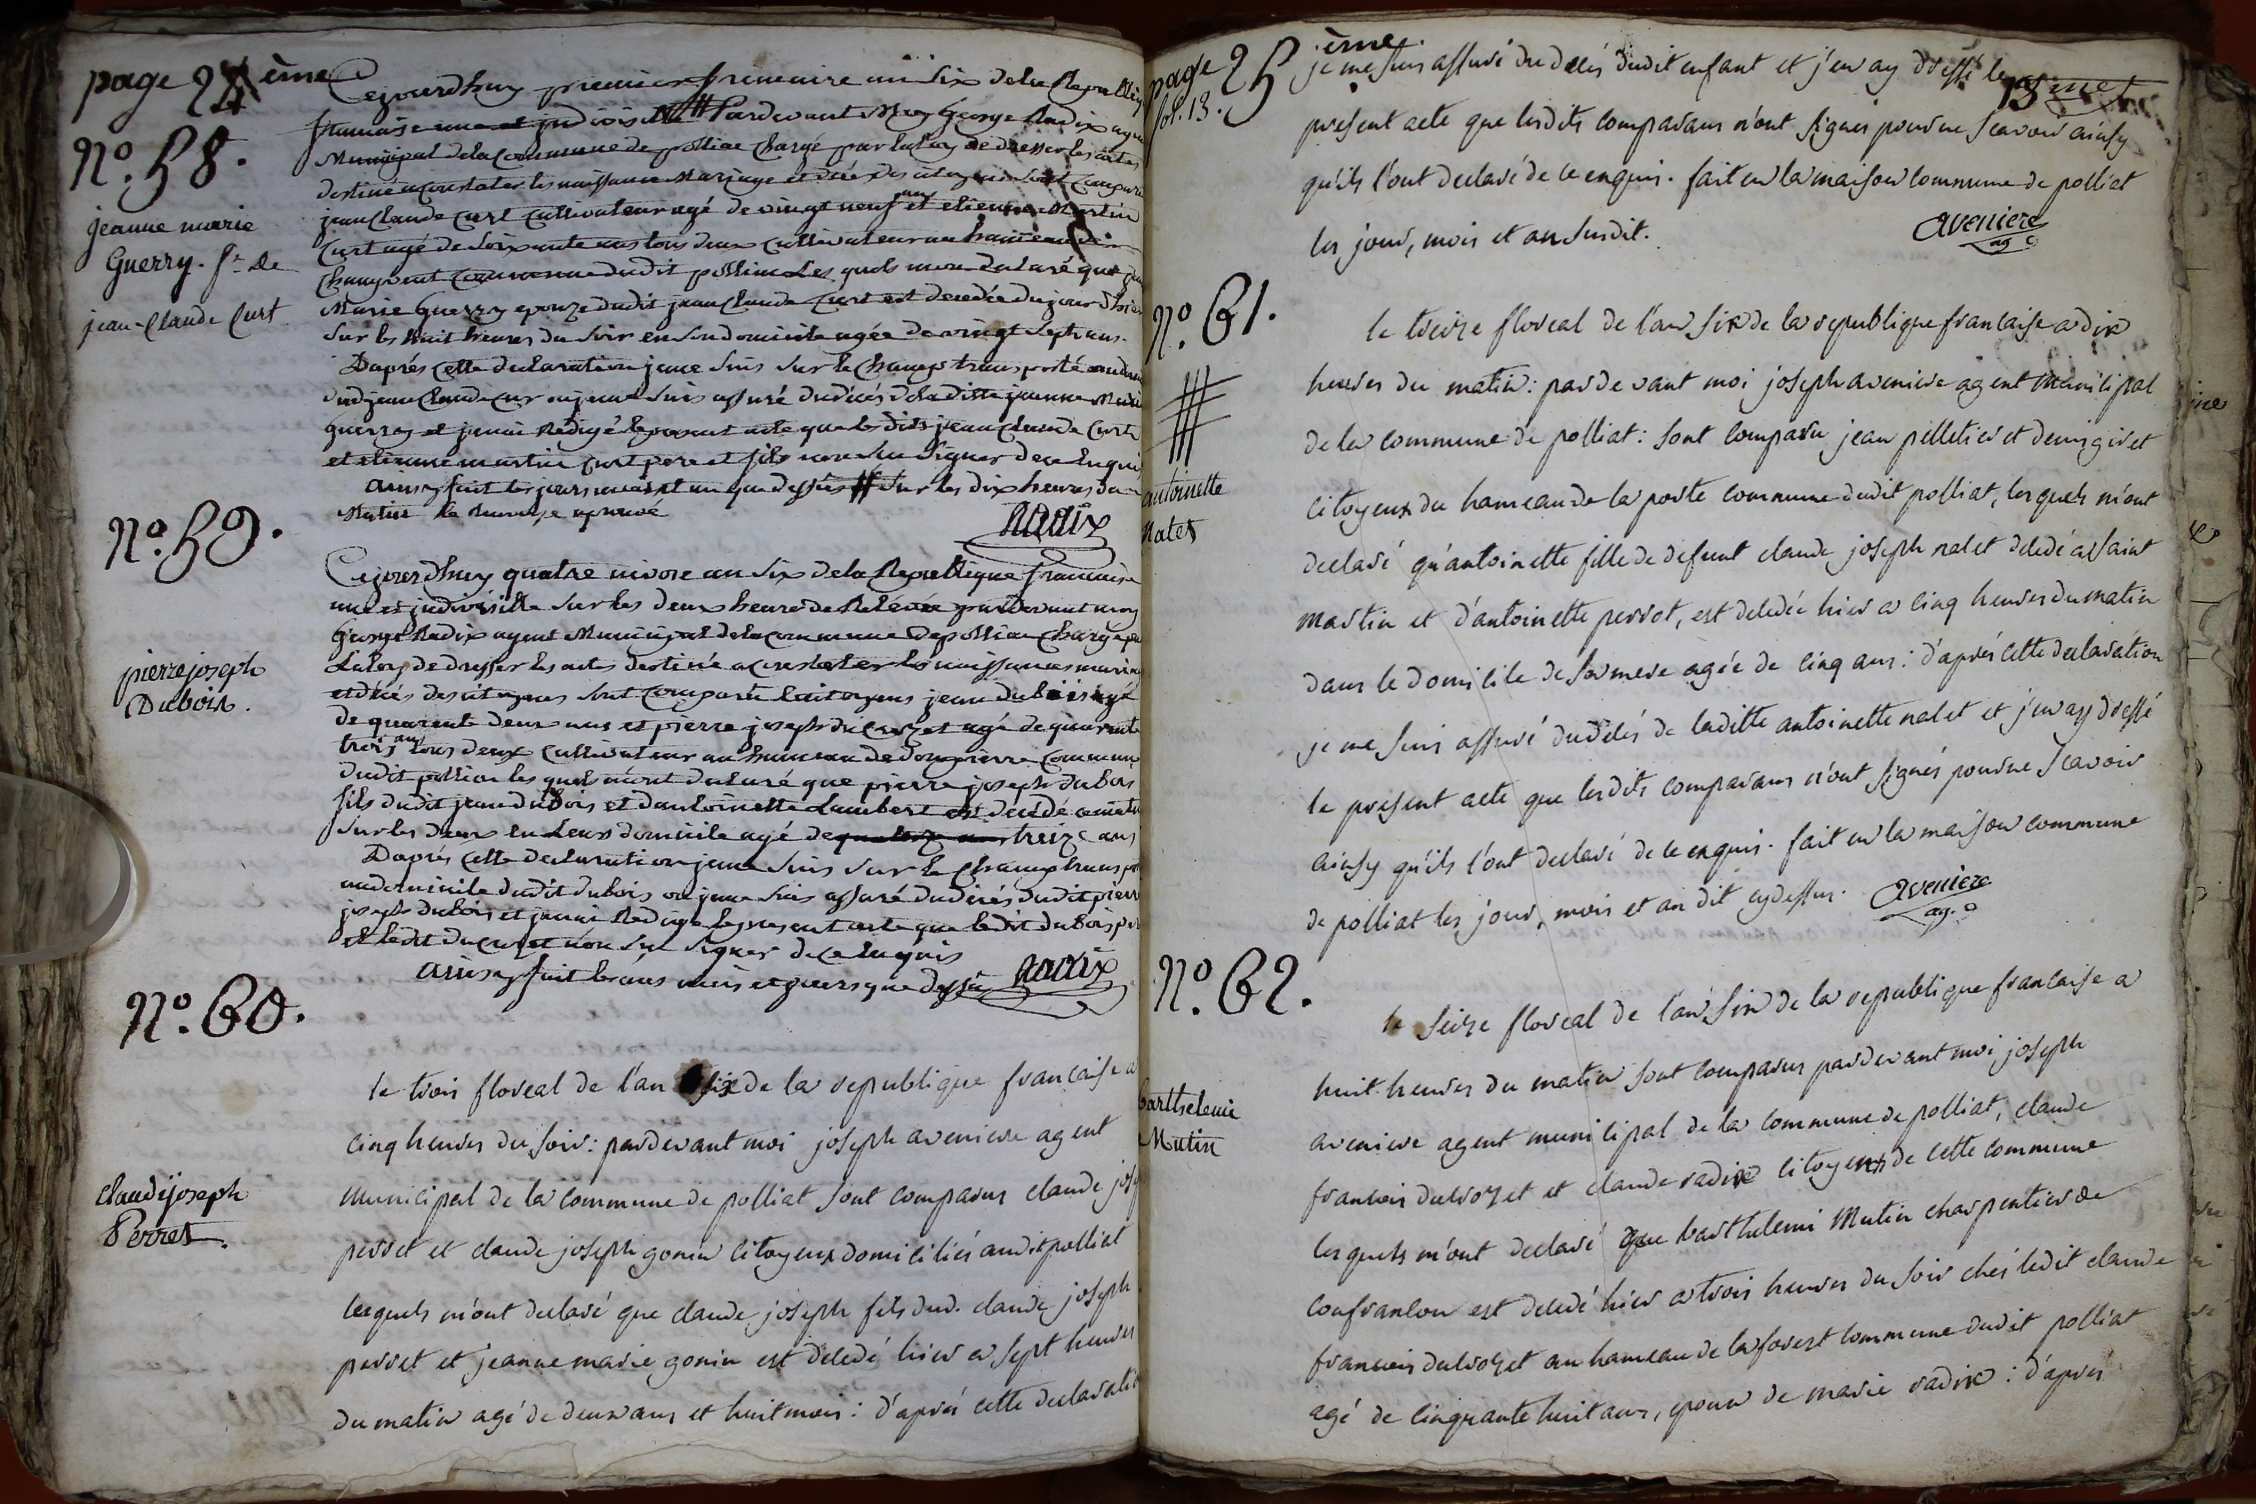 page 24 ème
N.º 58.
jeanne marie
Guerry. f.ᵉ de
jean-Claude Curt
Cejourdhuy premier frimaire an six de la Republiq
francaise une et indivisible # Pardevant Moy George Radix agent
Municipal de la Commune de polliat Chargé par la Loy de dresser les actes
destiné a constater les naissance Mariage et décès des citoyens sont comparu
jean Claude Curt Cultivateur agé de vingt neuf ans et etienne Martin
Curt agé de soixante ans tous deux Cultivateur au hameau de
Changrout Commune dudit polliat Les quels mon déclaré que
Marie Guerry epouze dudit jean Claude Curt est decedée du jour d'hier
sur les huit heures du soir en son domicile agée de vingt sept ans.
D'aprés Cette declaration je me suis sur le Champs transporté au
dud jean Claude Cur ou je me suis assuré du décès de laditte jeanne Marie
guerry et j'en ai Rédigé le present acte que les dits jean Claude Curt
et etienne martin Curt pere et fils n'on seu signer de ce Enqui
ainsy fait les jours mois et an que dessus # sur les dix heures du
Matin le Renvoye aprouvé
Radix
N.º 59.
pierre joseph
Dubois.
Cejourdhuy quatre nivose an six de la Republique francaise
une et indivisible sur les deux heure de Relevée pardevant moy
George Radix agent Municipal de la Commune de polliat Chargé par
la loy de dresser les actes destiné a constater les naissances mariage
et décès des citoyens sont comparu les citoyens jean dubois agé
de quarante deux ans et pierre joseph du Curzet agé de quarante
trois ans tous deux Cultivateur au hameau de dompierre Commune
dudit polliat les quels m'ont déclaré que pierre joseph dubois
fils dudit jean dubois et d'antoinette Lambert est décédé ce matin
sur les deux en Leur domicile agé de quatorze ans treize ans
D'aprés Cette declaration je me suis sur le Champ trans
au domicile dudit dubois ou je me suis assuré du décés dudit pierre
joseph dubois et j'en ai Redigé le present acte que ledit dubois
et ledit du curzet n'on su signer de ce Enquis
ainsy fait les ans mois et jours que dessu
Radix
N.º 60.
claude joseph
Perret.
le trois floreal de l'an six de la republique francaise a
cinq heures du soir: pardevant moi joseph aveniere agent
municipal de la commune de polliat sont comparus claude jos
perret et claude joseph gonin citoyens domiciliés audit polliat
lesquels m'ont declaré que claude joseph fils dud. claude joseph
perret et jeanne marie gonin est decedé hier a sept heures
du matin agé de deux ans et huit mois: d'après cette declaration
page 25 ème
fol. 13.
13 met
je me suis assuré du decés dudit enfant et j'en ay dressé le
present acte que lesdits comparans n'ont signés pour ne scavoir ainsy
qu'ils l'ont declaré de ce enquis. fait en la maison commune de polliat
les jour, mois et an susdit.
aveniere
ag c
N.º 61.
antoinette
Nalet
le treize floreal de l'an six de la republique francaise a dix
heures du matin: pardevant moi joseph aveniere agent municipal
de la commune de polliat: sont comparu jean pelletier et denis giret
citoyens du hameau de la poste commune dudit polliat, lesquels m'ont
declaré qu'antoinette fille de defunt claude joseph nalet decedé a saint
martin et d'antoinette perrot, est decedée hier a cinq heures du matin
dans le domicile de sa mere agée de cinq ans: d'aprés cette declaration
je me suis assuré du décés de laditte antoinette nalet et j'en ay dressé
le present acte que lesdits comparans n'ont signés pour ne scavoir
ainsy qu'ils l'ont declaré de ce enquis. fait en la maison commune
de polliat les jour, mois et an dit cydessus.
aveniere
ag. c
N.º 62.
barthelemi
Mutin
le seize floreal de l'an six de la republique francaise a
huit heures du matin sont comparus pardevant moi joseph
aveniere agent municipal de la commune de polliat, claude
francois ducrozet et claude radix citoyens de cette commune
lesquels m'ont declaré que barthelemi Mutin charpentier de
confrancon est decedé hier a trois heures du soir chés ledit claude
francois ducrozet au hameau de la forest commune dudit polliat
agé de cinquante huit ans, epoux de marie radix: d'apres